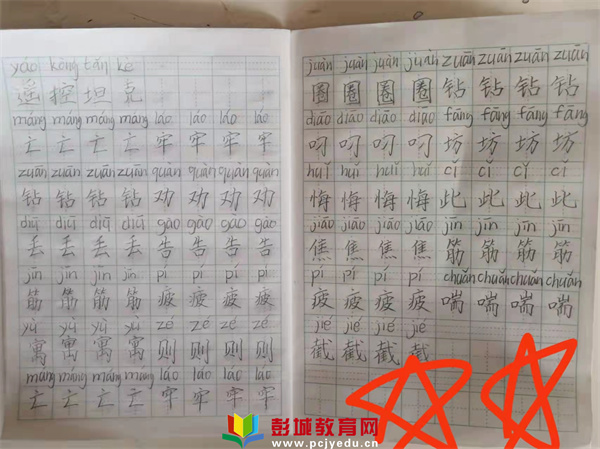 yáo kòng tǎn kè
遥 控 坦 克
máng máng máng máng láo láo láo
亡 亡 亡 亡 牢 牢 牢
zuān zuān zuān zuān quàn quàn quàn quàn
钻 钻 钻 钻 劝 劝 劝 劝
diū diū diū diū gào gào gào gào
丢 丢 丢 丢 告 告 告 告
jīn jīn jīn jīn pí pí pí pí
筋 筋 筋 筋 疲 疲 疲 疲
yù yù yù yù zé zé zé zé
寓 寓 寓 寓 则 则 则 则
máng máng máng máng láo láo láo láo
亡 亡 亡 亡 牢 牢 牢 牢
juàn juàn juàn juàn zuān zuān zuān zuān
圈 圈 圈 圈 钻 钻 钻 钻
diāo diāo diāo diāo fāng fāng fāng fāng
叼 叼 叼 叼 坊 坊 坊 坊
huǐ huǐ huǐ huǐ cǐ cǐ cǐ cǐ
悔 悔 悔 悔 此 此 此 此
jiāo jiāo jiāo jiāo jīn jīn jīn jīn
焦 焦 焦 焦 筋 筋 筋 筋
pí pí pí pí chuǎn chuǎn chuǎn chuǎn
疲 疲 疲 疲 喘 喘 喘 喘
jié jié jié jié
截 截 截 截
彭城教育网
www.pcjyedu.cn